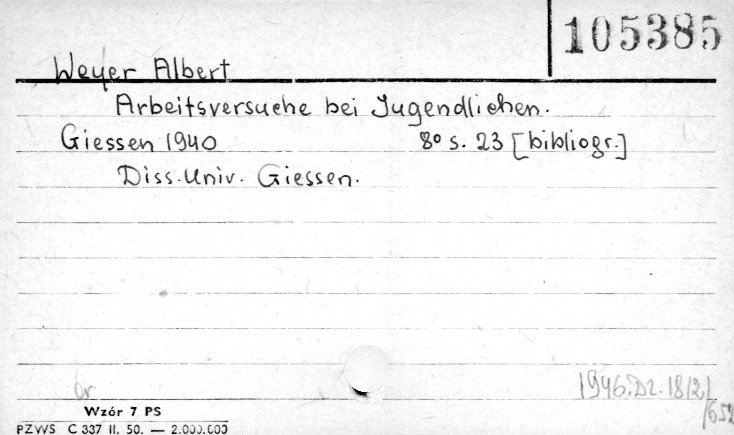 105385
Weyer Albert
Arbeitsversuche bei Jugendlichen.
Giessen 1940 8° s. 23 [bibliogr.]
Diss. Univ. Giessen.
1946.Dz.1812/
br
Wzór 7 PS
PZWS C 337 II. 50. — 2.000.000